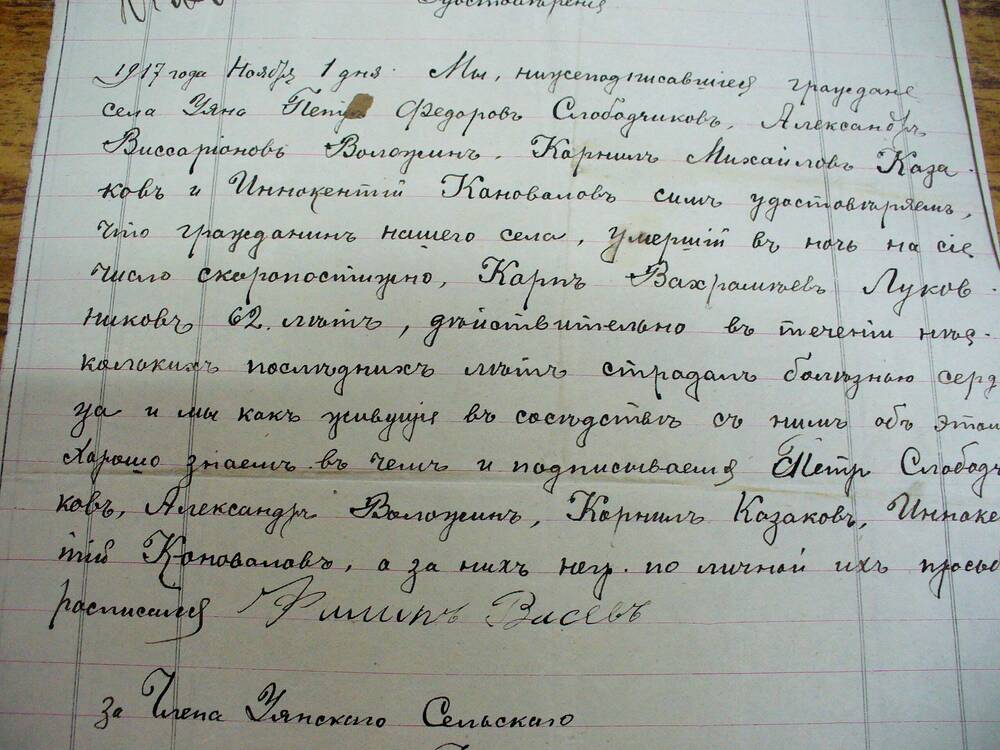 Удостоверение
1917 года Ноября 1 дня. Мы, нижеподписавшиеся граждане
села Уянъ Петръ Федоровъ Слободчиковъ, Александръ
Виссарiоновъ Воложинъ, Корнилъ Михайловъ Каза-
ковъ и Иннокентiй Кановаловъ симъ удостовѣряемъ,
что гражданинъ нашего села, умершiй въ ночь на сiе
число скоропостижно, Карпъ Вахрамѣевъ Луков-
никовъ 62. лѣтъ, дѣйствительно въ теченiи нѣс-
колькихъ послѣднихъ лѣтъ страдалъ болѣзнью серд
ца и мы какъ живущiя въ сосѣдствѣ съ нимъ объ этом
хорошо знаемъ въ чемъ и подписываемся Петръ Слободч
ковъ, Александръ Воложинъ, Корнилъ Казаковъ, Иннокен
тiй Коноваловъ, а за нихъ негр. по личной ихъ просьб
росписался Филипъ Висевъ
за Члена Уянскаго Сельскаго